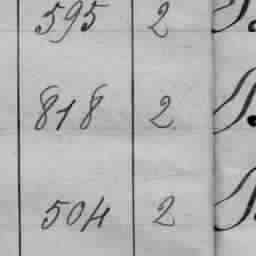 595 2
818 2
504 2